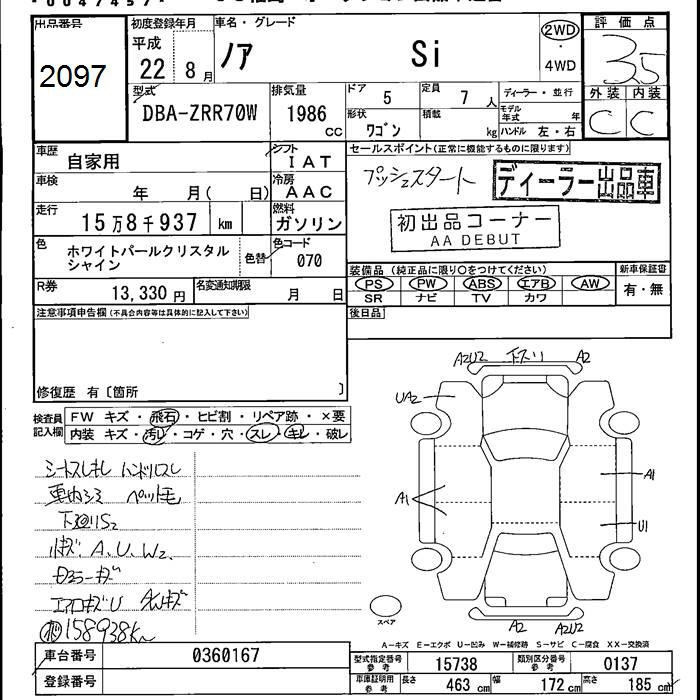 出品番号
2097
初度登録年月
平成
22 8月
車名・グレード
ノア Si
2WD
・
4WD
評価点
3.5
外装 内装
C C
型式
DBA-ZRR70W
排気量
1986
cc
ドア 5
定員 7人
形状 ワゴン
積載 kg
ディーラー・並行
モデル年式 年
ハンドル 左・右
車歴 自家用
シフト IAT
車検 年 月( 日)
冷房 AAC
走行 15万8千937 km
燃料 ガソリン
色 ホワイトパールクリスタル
シャイン
色替
色コード 070
R券 13,330円
名変通知期限 月 日
セールスポイント(正常に機能するものに限ります)
プッシュスタート
ディーラー出品車
初出品コーナー
AA DEBUT
装備品(純正品に限り○をつけてください)
PS PW ABS エアB AW
SR ナビ TV カワ
新車保証書
有・無
後日品
注意事項申告欄(不具合内容等は具体的に記入して下さい)
修復歴 有〔箇所 〕
検査員
記入欄
FW キズ・飛石・ヒビ割・リペア跡・×要
内装 キズ・汚れ・コゲ・穴・スレ・キレ・破レ
シートスレキレ ハンドルスレ
車内シミ ペット毛
下廻りS2
小キズ、A、U、W2、
エアロキズU
158938km
A2U2 下スリ A2
UA2
A1
A1
U1
A2 A2U2
スペア
A-キズ E-エクボ U-凹み W-補修跡 S-サビ C-腐食 XX-交換済
車台番号 0360167
登録番号
型式指定番号
参考
15738
類別区分番号
参考
0137
車庫証明用
参考
長さ 463cm 幅 172cm 高さ 185cm